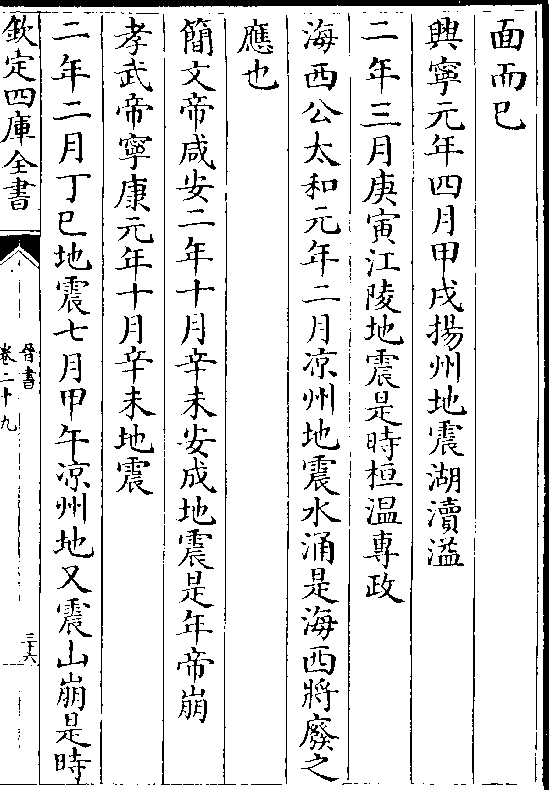 面而已
興寧元年四月甲戌揚州地震湖瀆溢
二年三月庚寅江陵地震是時桓温專政
海西公太和元年二月凉州地震水涌是海西將廢之
應也
簡文帝咸安二年十月辛未安成地震是年帝崩
孝武帝寧康元年十月辛未地震
二年二月丁巳地震七月甲午凉州地又震山崩是時
欽定四庫全書
晉書
卷二十九
三十六